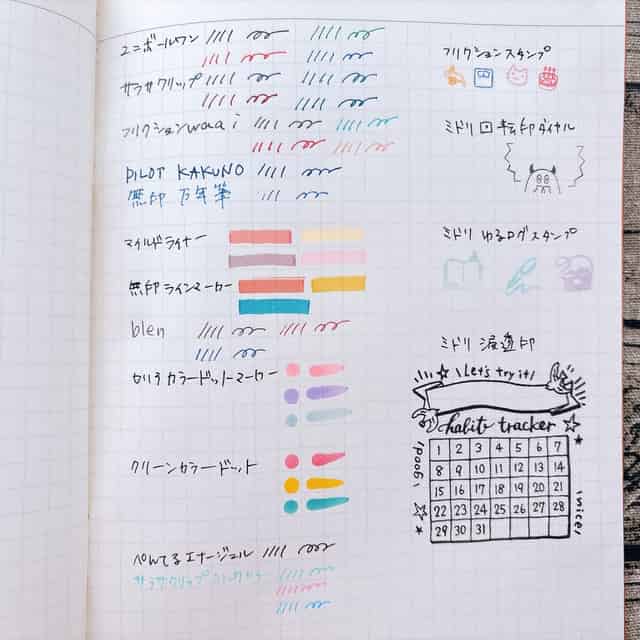 ユニボールワン
サラサクリップ
フリクションwaai
PILOT KAKUNO
無印 万年筆
マイルドライナー
無印ラインマーカー
blen
カラードットマーカー
クリーンカラードット
ぺんてるエナージェル
サラサクリップ
フリクションスタンプ
ミドリ 回転印ダイヤル
ミドリ ゆるログスタンプ
ミドリ 浸透印
Let's try it!
habit tracker
good!
nice!
1 2 3 4 5 6 7
8 9 10 11 12 13 14
15 16 17 18 19 20 21
22 23 24 25 26 27 28
29 30 31